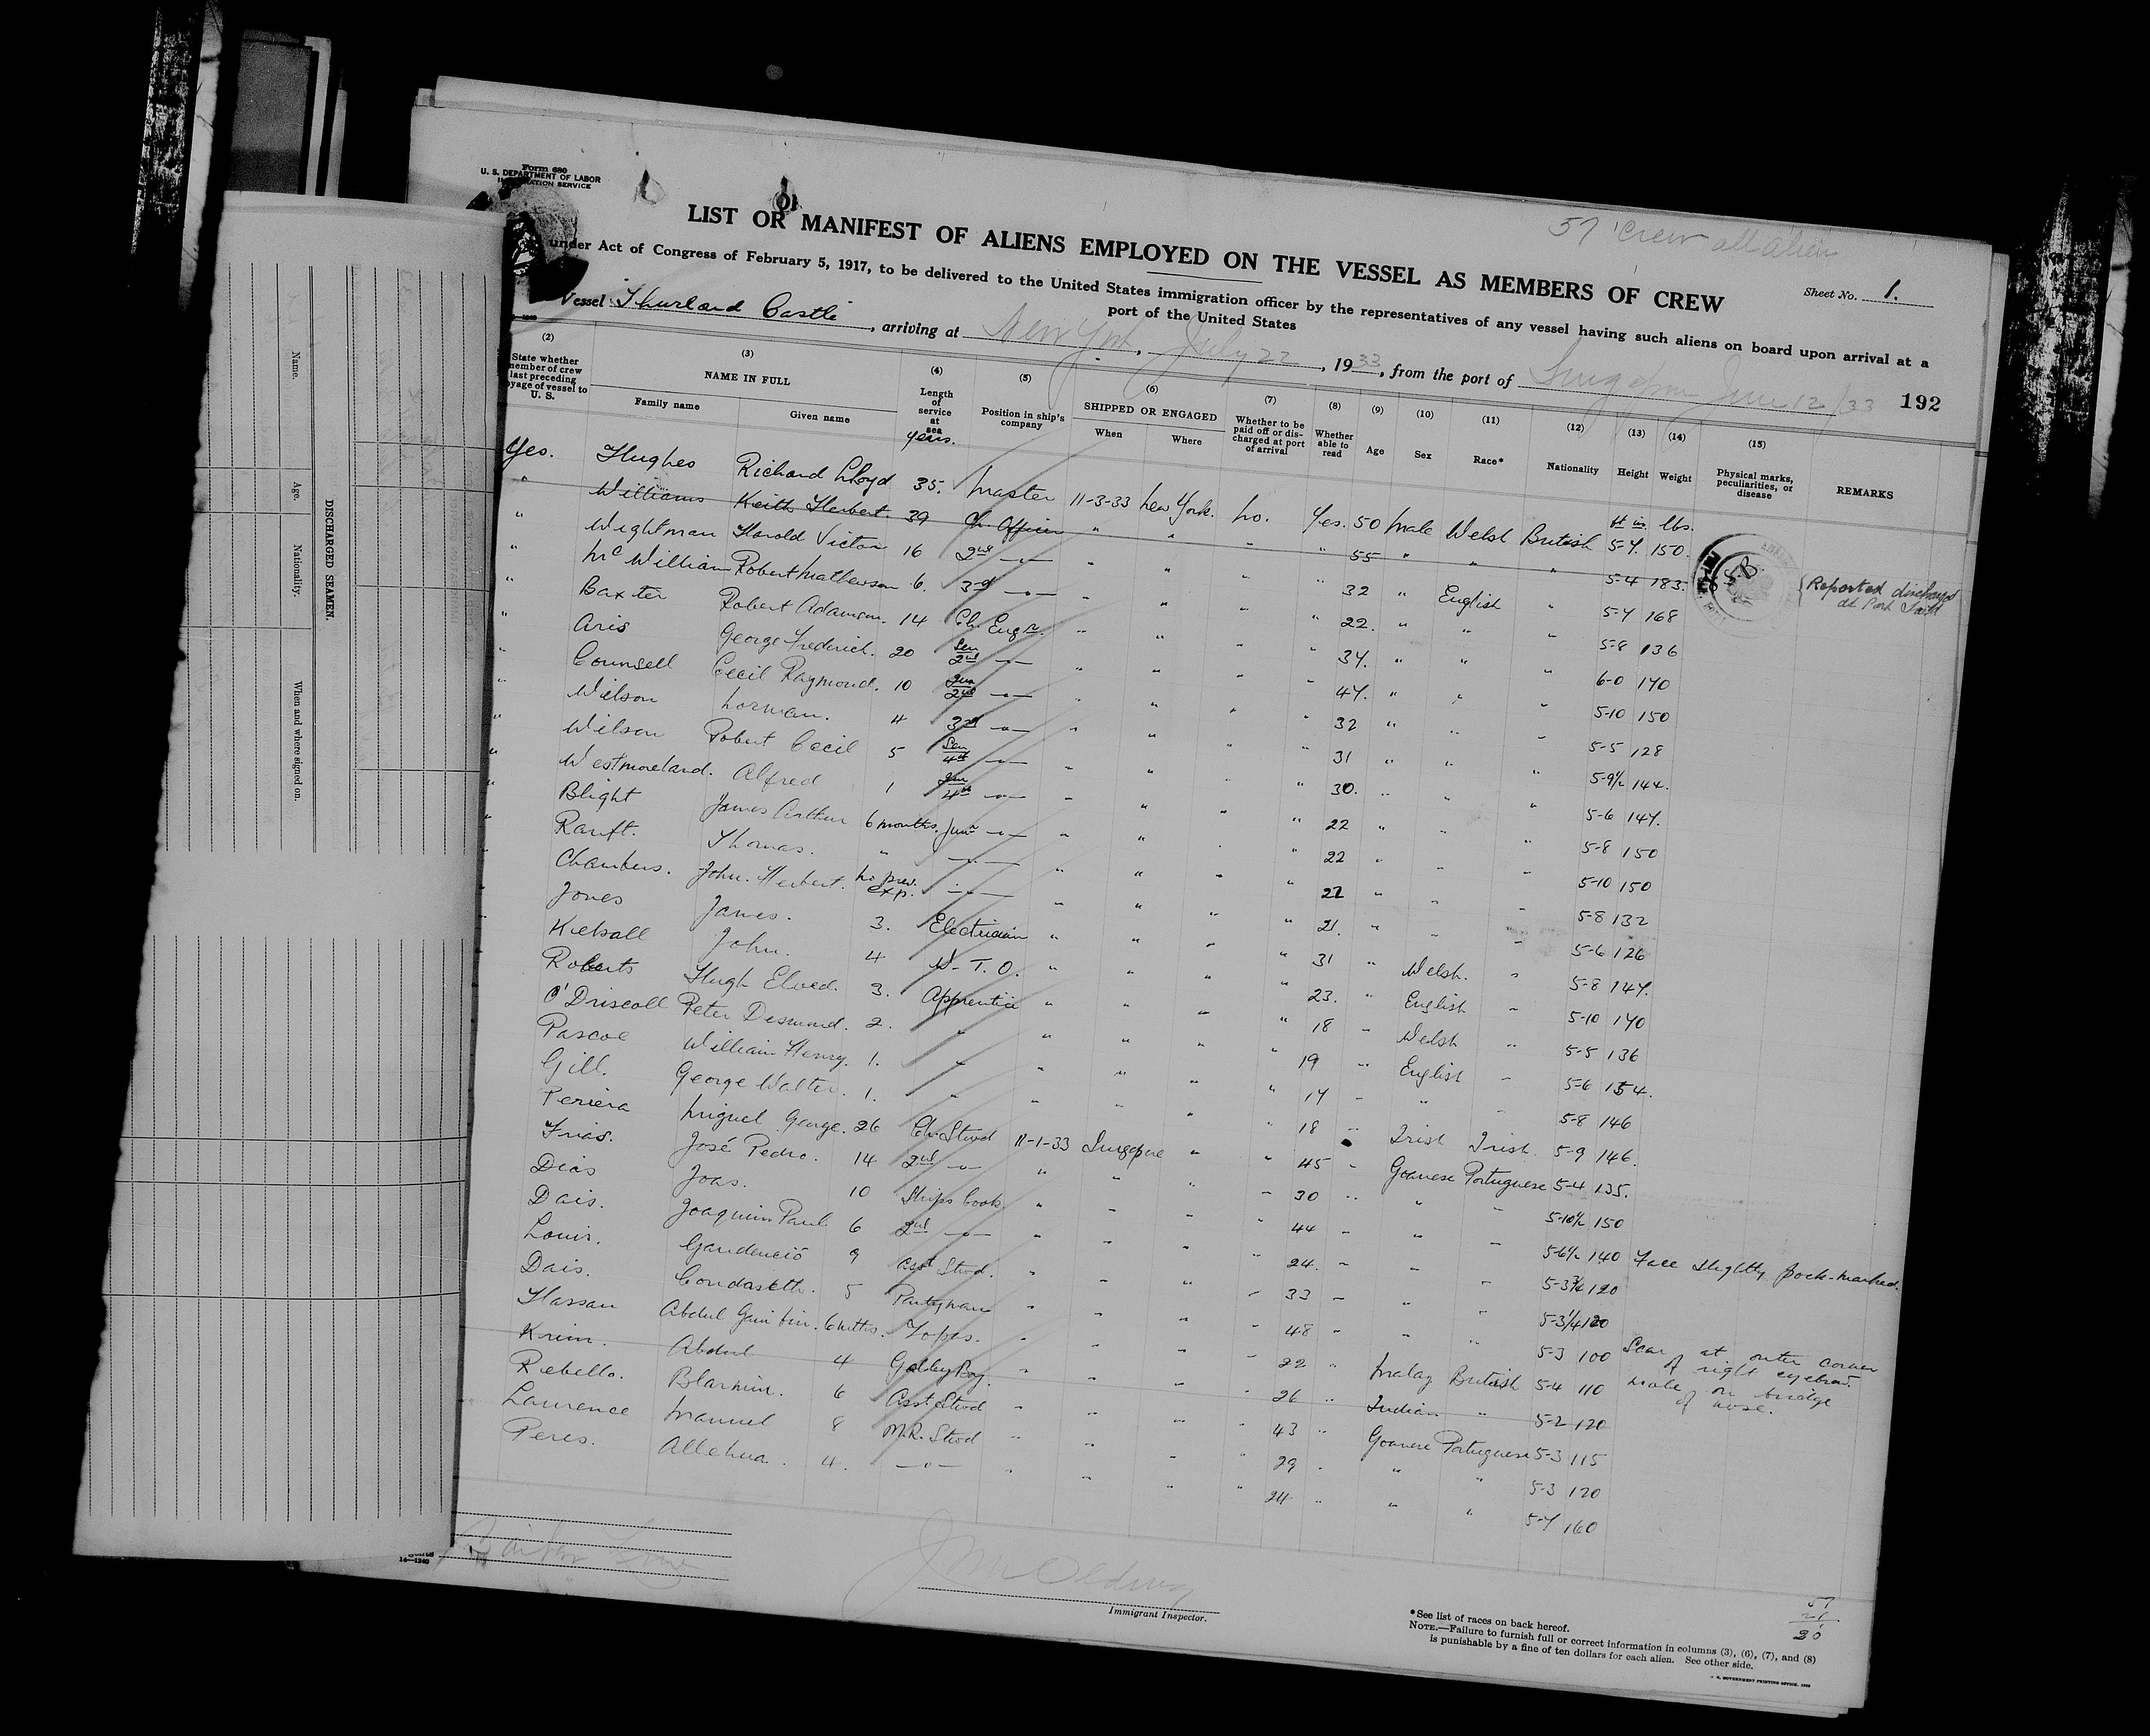 Form 680
U. S. DEPARTMENT OF LABOR
IMMIGRATION SERVICE
57 Crew all alien
LIST OR MANIFEST OF ALIENS EMPLOYED ON THE VESSEL AS MEMBERS OF CREW
Sheet No. 1.
under Act of Congress of February 5, 1917, to be delivered to the United States immigration officer by the representatives of any vessel having such aliens on board upon arrival at a
port of the United States
Vessel Thurland Castle, arriving at New York, July 22, 1933, from the port of Singapore June 12/33 192
(2) (3) (4) (5) (6) (7) (8) (9) (10) (11) (12) (13) (14) (15)
State whether member of crew last preceding voyage of vessel to U. S.
NAME IN FULL Family name Given name
Length of service at sea years.
Position in ship's company
SHIPPED OR ENGAGED When Where
Whether to be paid off or discharged at port of arrival
Whether able to read
Age Sex Race* Nationality Height Weight
Physical marks, peculiarities, or disease
REMARKS
ft in. lbs.
Yes. Hughes Richard Lloyd 35. Master 11-3-33 New York. No. Yes. 50 Male Welsh British 5-7. 150.
" Williams Keith Herbert. 39 Ch. Officer " " " " 55 " " " 5-4 183. S.B. Reported discharged at Port Said
" Wightman Harold Victor 16 2nd —"— " " " " 32 " English " 5-7 168
" McWilliam Robert Mathewson 6. 3rd —"— " " " " 22. " " " 5-8 136
" Baxter Robert Adamson. 14 Ch. Engr. " " " " 37. " " " 6-0 170
" Aris George Frederick. 20 Sen 2nd —"— " " " " 47. " " " 5-10 150
" Counsell Cecil Raymond. 10 Jun 2nd —"— " " " " 32 " " " 5-5 128
" Wilson Norman. 4 3rd —"— " " " " 31 " " " 5-9½ 144.
" Wilson Robert Cecil 5 Sen 4th —"— " " " " 30. " " " 5-6 147.
" Westmoreland. Alfred 1 Jun 4th —"— " " " " 22 " " " 5-8 150
" Blight James Arthur 6 months. Junr —"— " " " " 22 " " " 5-10 150
" Ranft. Thomas. " —"— " " " " 22 " " " 5-8 132
Chambers. John. Herbert. No prev. exp. —"— " " " " 21. " " " 5-6 126
Jones James. 3. Electrician " " " " 31 " Welsh. " 5-8 147.
Kelsall John. 4 W. T. O. " " " " 23. " English " 5-10 140
Roberts Hugh Elved. 3. Apprentice " " " " 18 " Welsh " 5-5 136
O'Driscoll Peter Desmond. 2. " " " " " 19 " English " 5-6 154.
Pascoe William Henry. 1. " " " " " 17 " " " 5-8 146
Gill. George Walter. 1. " " " " " 18 " Irish Irish. 5-9 146.
Periera Miguel George. 26 Ch. Stwd 11-1-33 Singapore " " 45 " Goanese Portuguese 5-4 135.
Frias. José Pedro. 14 2nd —"— " " " " 30 " " " 5-10½ 150
Dias Joas. 10 Ships Cook. " " " " 44 " " " 5-6½ 140 Face slightly pock-marked.
Dais. Joaquim Paul 6 2nd —"— " " " " 24. " " " 5-3¾ 120
Louis. Gaudencio 9 Asst Stwd. " " " " 33 " " " 5-3¼ 120
Dais. 5 Pantryman " " " " 48 " " " 5-3 100 Scar at outer corner of right eyebrow.
Hassan Abdul Gani bin. 6 mths. Topas. " " " " 22 " Malay British 5-4 110 Mole on bridge of nose.
Krim. Abdul 4 Galley Boy. " " " " 26 " Indian " 5-2 120
Rebello. 6 Asst Stwd " " " " 43 " Goanese Portuguese 5-3 115
Laurence Manuel 8 M.R. Stwd " " " " 29 " " " 5-3 120
Peres. 4. —"— " " " " 24 " " " 5-7 160
14—1240
Immigrant Inspector.
*See list of races on back hereof.
NOTE.—Failure to furnish full or correct information in columns (3), (6), (7), and (8)
is punishable by a fine of ten dollars for each alien. See other side.
U. S. GOVERNMENT PRINTING OFFICE
DISCHARGED SEAMEN.
Name. Age. Nationality. When and where signed on.